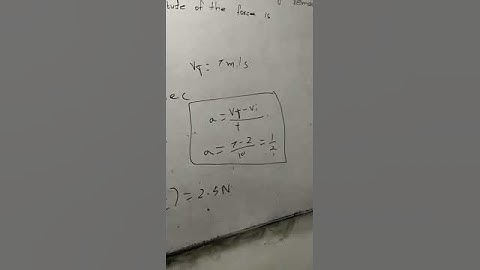 tude of the force is
Vf = 7 m/s
ec
a = Vf - Vi / t
a = 7 - 2 / 10 = 1 / 2
) = 2.5 N